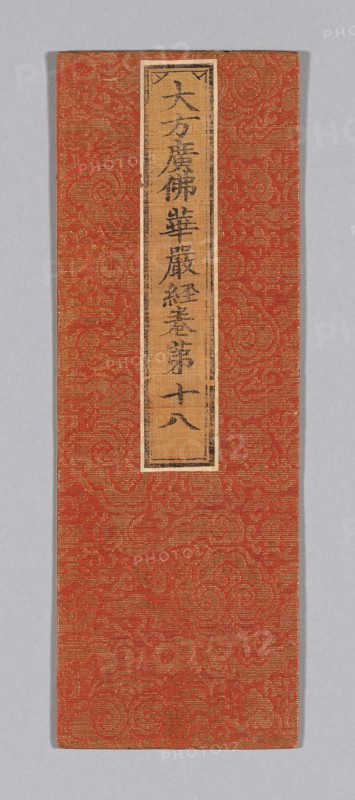 大方廣佛華嚴經卷第十八
PHOTO12